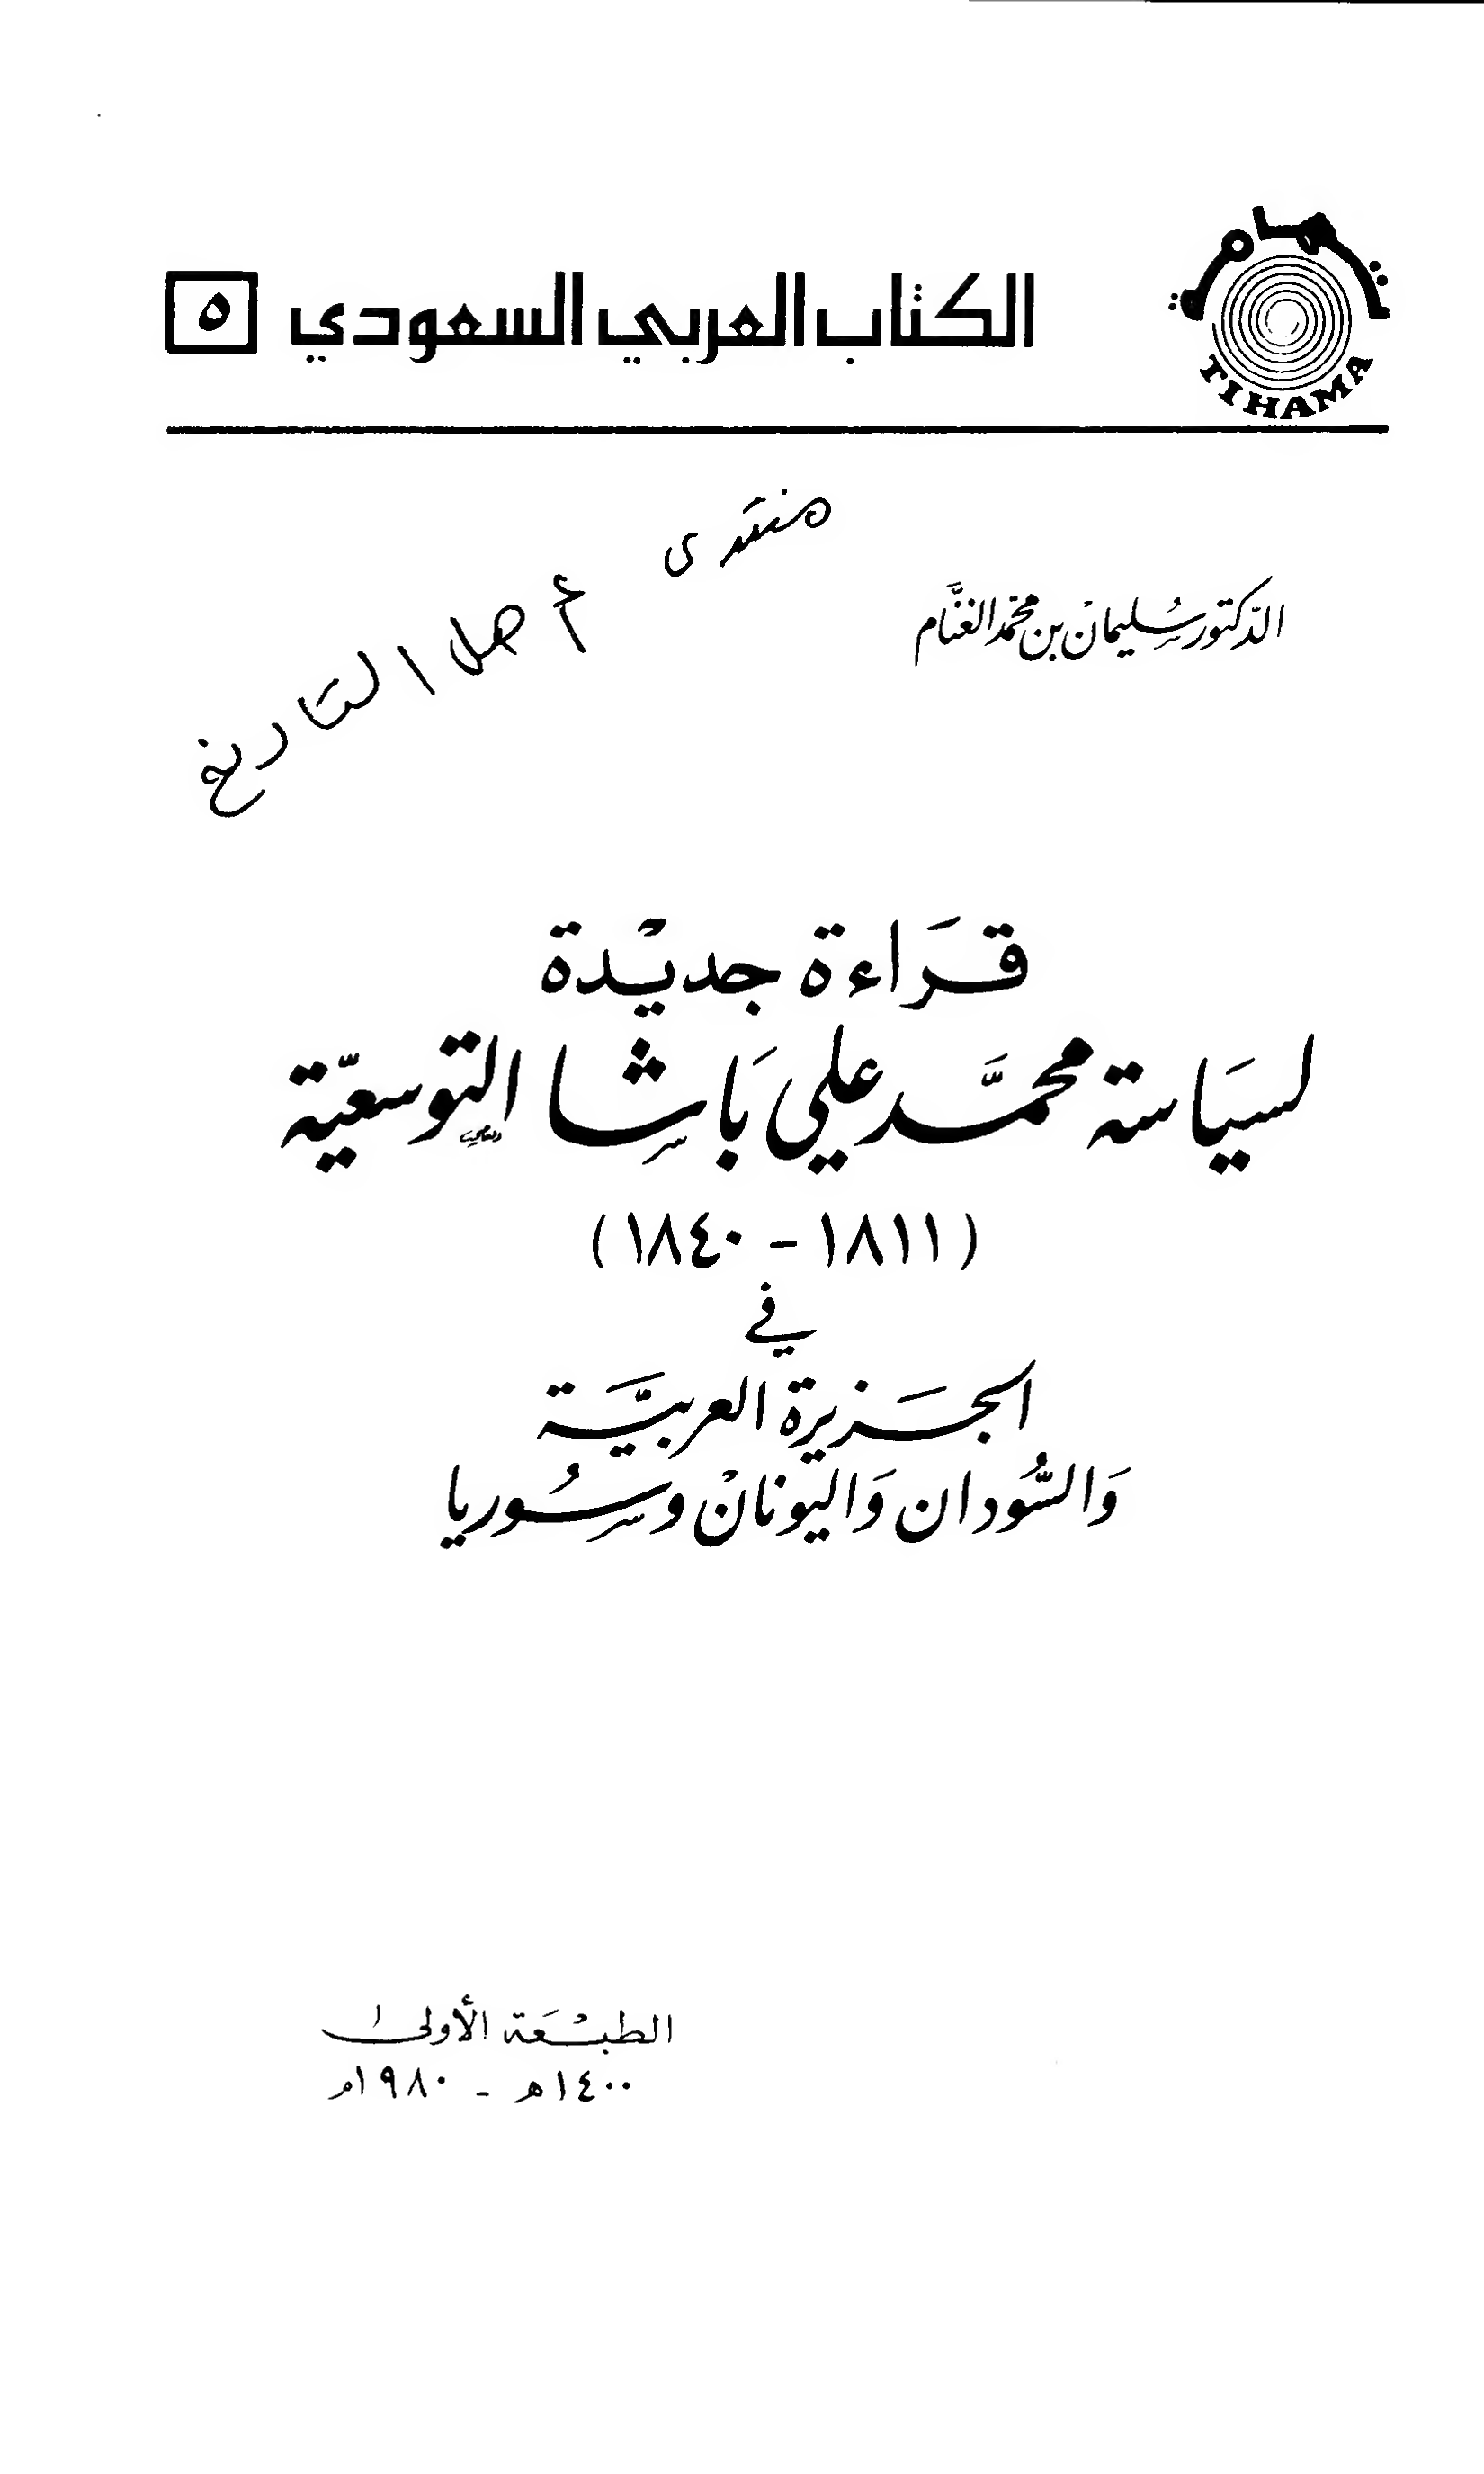 تهامة
TIHAMA
الكتاب العربي السعودي ٥
منتدى
أهل التاريخ
الدّكتور سُليمان بن محمّد الغنَّام
قَراءة جديْدة
لسيَاسة محمَّد علي بَاشا التوسعيّة
(١٨١١ - ١٨٤٠)
في
الجَزيرة العربيَّة
وَالسُّودان وَاليونانْ وسُوريا
الطبْعَة الأولىٰ
١٤٠٠هـ - ١٩٨٠م